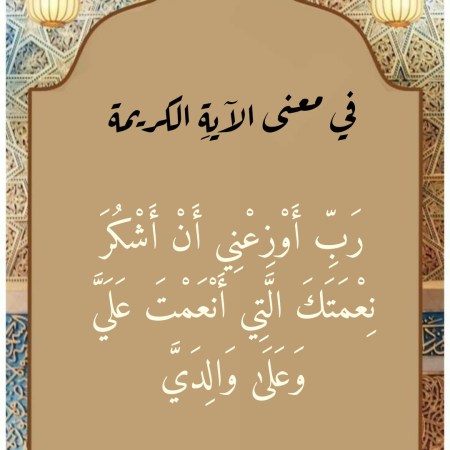 في معنى الآيةِ الكريمة
رَبِّ أَوْزِعْنِي أَنْ أَشْكُرَ
نِعْمَتَكَ الَّتِي أَنْعَمْتَ عَلَيَّ
وَعَلَىٰ وَالِدَيَّ